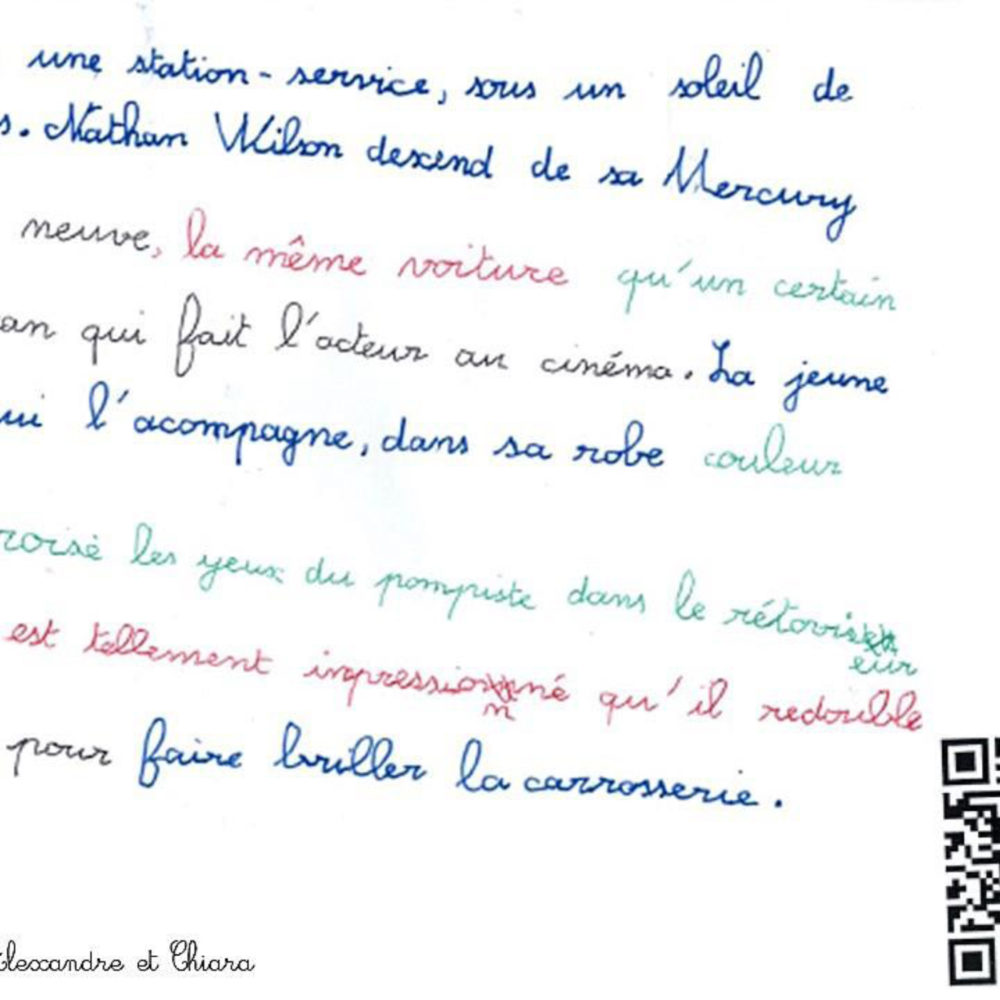 une station-service, sous un soleil de
s. Nathan Wilson descend de sa Mercury
neuve, la même voiture qu'un certain
an qui fait l'acteur au cinéma. La jeune
ui l'acompagne, dans sa robe couleur
roisé les yeux du pompiste dans le rétoviseur
est tellement impressionné qu'il redouble
pour faire briller la carrosserie.
lexandre et Chiara